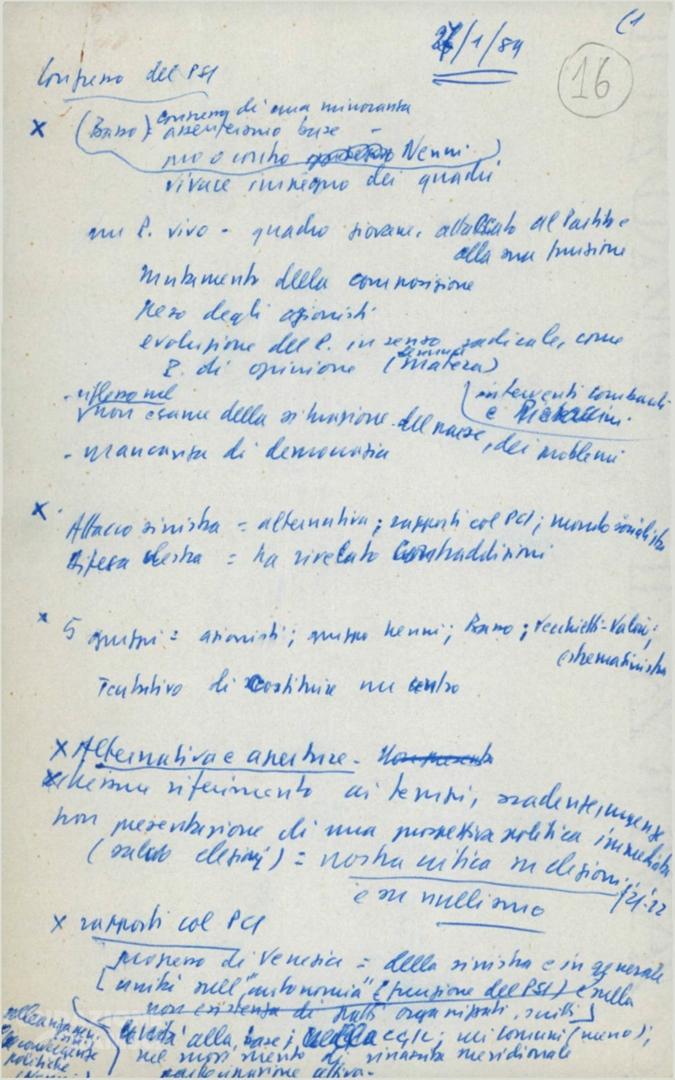 (1
27/1/59
16
Congresso del PSI
x (Basso): congresso di una minoranza
assenteismo base -
pro o contro Nenni)
vivace impegno dei quadri
un P. vivo - quadro giovane, attaccato al Partito e
alla sua funzione
Mutamento della composizione
peso degli azionisti
evoluzione del P. in senso radicale, come
P. di opinione (Matera)
interventi Lombardi
e
- riflesso nel
non esame della situazione del paese, dei problemi
- mancanza di democrazia
x Attacco sinistra = alternativa; rapporti col PCI; mondo socialista
Difesa destra = ha rivelato contraddizioni
x 5 gruppi = azionisti; gruppo Nenni; Basso; Vecchietti-Valori;
estrema sinistra
Tentativo di costituire un centro
x Alternativa e aperture -
x Nessun riferimento ai tempi, scadenze, urgenze
non presentazione di una prospettiva politica immediata
(salvo elezioni) = nostra critica su elezioni
/21-22
e su nullismo
x rapporti col PCI
processo di Venezia = della sinistra e in generale
[unità sull'"autonomia" (funzione del PSI) e sulla
non esistenza di patti organizzati, scritti]
unità alla base, nella CGIL, nei comuni (meno);
nel movimento di rinascita meridionale
politiche